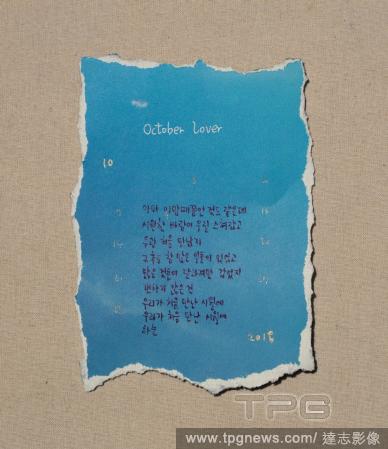 October Lover
10
아마 이맘때쯤인 것도 같은데
시원한 바람이 우릴 스쳐갔고
우린 처음 만났지
그 후로 참 많은 일들이 있었고
많은 것들이 달라져만 갔었지
변하지 않은 건
우리가 처음 만난 시월에
우리가 처음 만난 시월에
2018
TPG
www.tpgnews.com/ 達志影像